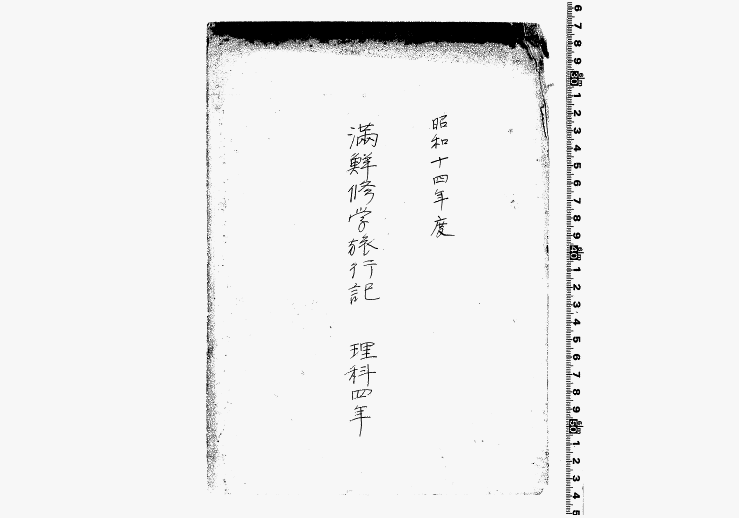 昭和十四年度
満鮮修学旅行記 理科四年
6 7 8 9 30 1 2 3 4 5 6 7 8 9 40 1 2 3 4 5 6 7 8 9 50 1 2 3 4 5